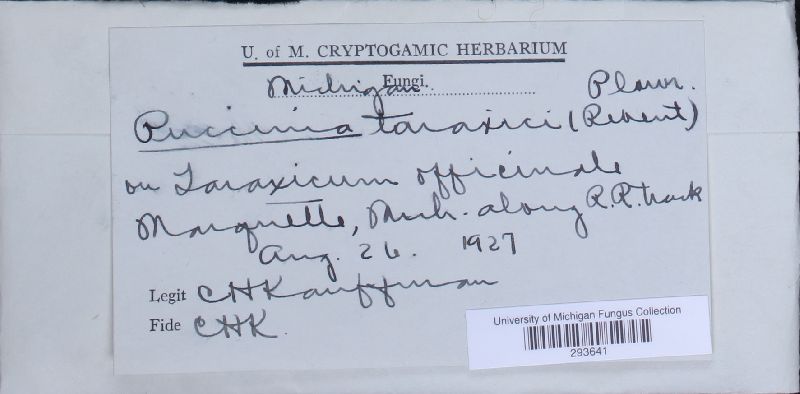 U. of M. CRYPTOGAMIC HERBARIUM
Fungi.
Michigan
Plowr.
Puccinia taraxici (Rebent)
on Taraxicum officinale
Marquette, Mich. along R.R. track
Aug. 26. 1927
Legit CHKauffman
Fide CHK.
University of Michigan Fungus Collection
293641